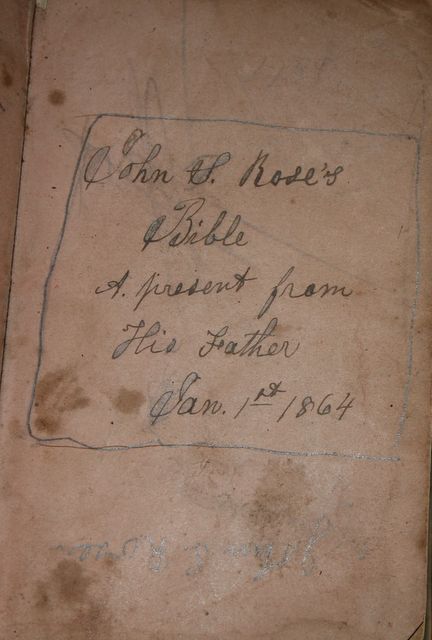 John S. Rose's
Bible
A. present from
His Father
Jan. 1st 1864